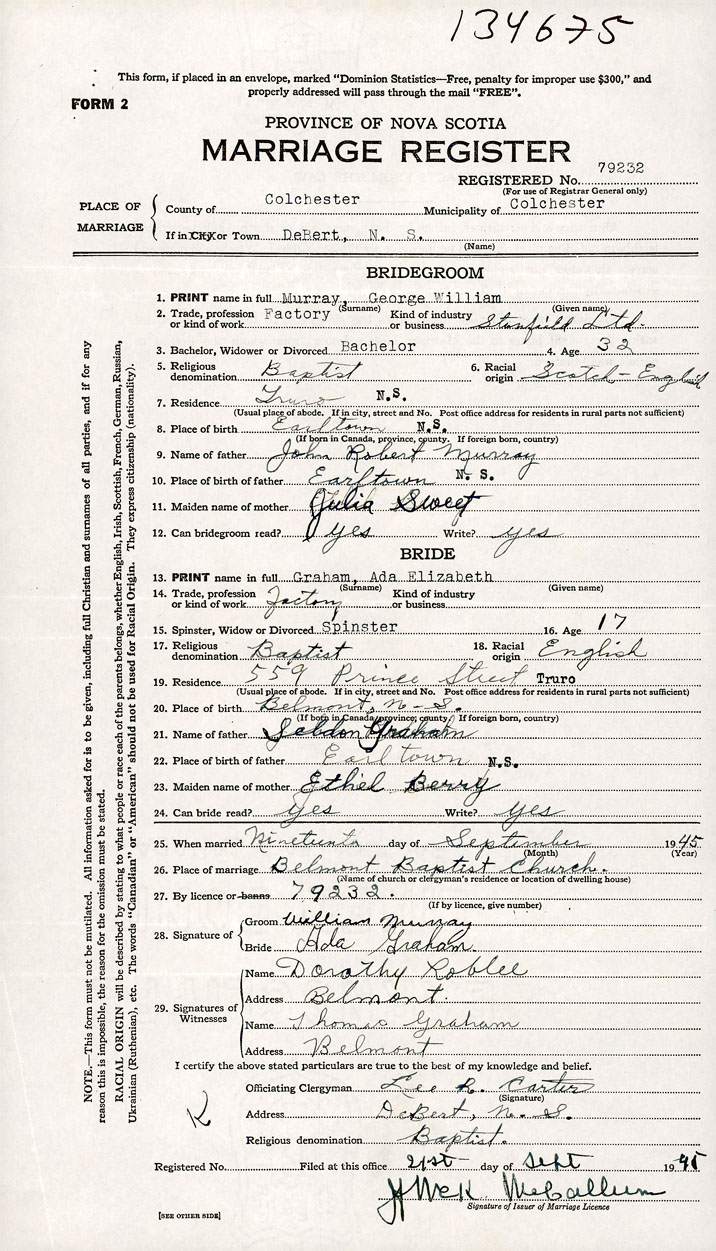 134675
This form, if placed in an envelope, marked "Dominion Statistics—Free, penalty for improper use $300," and
properly addressed will pass through the mail "FREE".
FORM 2
PROVINCE OF NOVA SCOTIA
MARRIAGE REGISTER
REGISTERED No. 79232
(For use of Registrar General only)
PLACE OF MARRIAGE
County of Colchester Municipality of Colchester
If in City or Town DeBert, N. S.
(Name)
BRIDEGROOM
1. PRINT name in full Murray, George William
(Surname) (Given name)
2. Trade, profession or kind of work Factory Kind of industry or business Stanfield Ltd.
3. Bachelor, Widower or Divorced Bachelor 4. Age 32
5. Religious denomination Baptist 6. Racial origin Scotch-English
7. Residence Truro N.S.
(Usual place of abode. If in city, street and No. Post office address for residents in rural parts not sufficient)
8. Place of birth Earltown N.S.
(If born in Canada, province, county. If foreign born, country)
9. Name of father John Robert Murray
10. Place of birth of father Earltown N. S.
11. Maiden name of mother Julia Sweet
12. Can bridegroom read? yes Write? yes
BRIDE
13. PRINT name in full Graham, Ada Elizabeth
(Surname) (Given name)
14. Trade, profession or kind of work Factory Kind of industry or business
15. Spinster, Widow or Divorced Spinster 16. Age 17
17. Religious denomination Baptist 18. Racial origin English
19. Residence 559 Prince Street Truro
(Usual place of abode. If in city, street and No. Post office address for residents in rural parts not sufficient)
20. Place of birth Belmont, N-S.
(If born in Canada, province, county. If foreign born, country)
21. Name of father Seldon Graham
22. Place of birth of father Earltown N.S.
23. Maiden name of mother Ethel Berry
24. Can bride read? yes Write? yes
25. When married Nineteenth day of September 1945
(Month) (Year)
26. Place of marriage Belmont Baptist Church.
(Name of church or clergyman's residence or location of dwelling house)
27. By licence or banns 79232.
(If by licence, give number)
28. Signature of
Groom William Murray
Bride Ada Graham.
29. Signatures of Witnesses
Name Dorothy Roblee
Address Belmont.
Name Thomas Graham
Address Belmont
I certify the above stated particulars are true to the best of my knowledge and belief.
Officiating Clergyman Lee R. Carter
(Signature)
Address DeBert, N. S.
Religious denomination Baptist.
Registered No. Filed at this office 21st day of Sept 1945
McCallum
Signature of Issuer of Marriage Licence
[SEE OTHER SIDE]
NOTE.—This form must not be mutilated. All information asked for is to be given, including full Christian and surnames of all parties, and if for any
reason this is impossible, the reason for the omission must be stated.
RACIAL ORIGIN will be described by stating to what people or race each of the parents belongs, whether English, Irish, Scottish, French, German, Russian,
Ukrainian (Ruthenian), etc. The words "Canadian" or "American" should not be used for Racial Origin. They express citizenship (nationality).